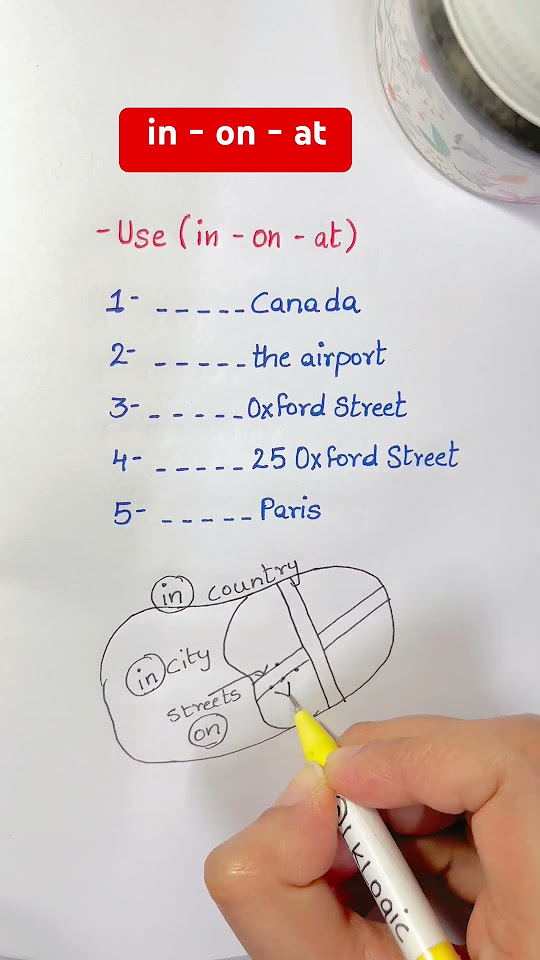 in - on - at
- Use (in - on - at)
1- _ _ _ _ _ Canada
2- _ _ _ _ _ the airport
3- _ _ _ _ _ Oxford Street
4- _ _ _ _ _ 25 Oxford Street
5- _ _ _ _ _ Paris
in country
in city
streets
on